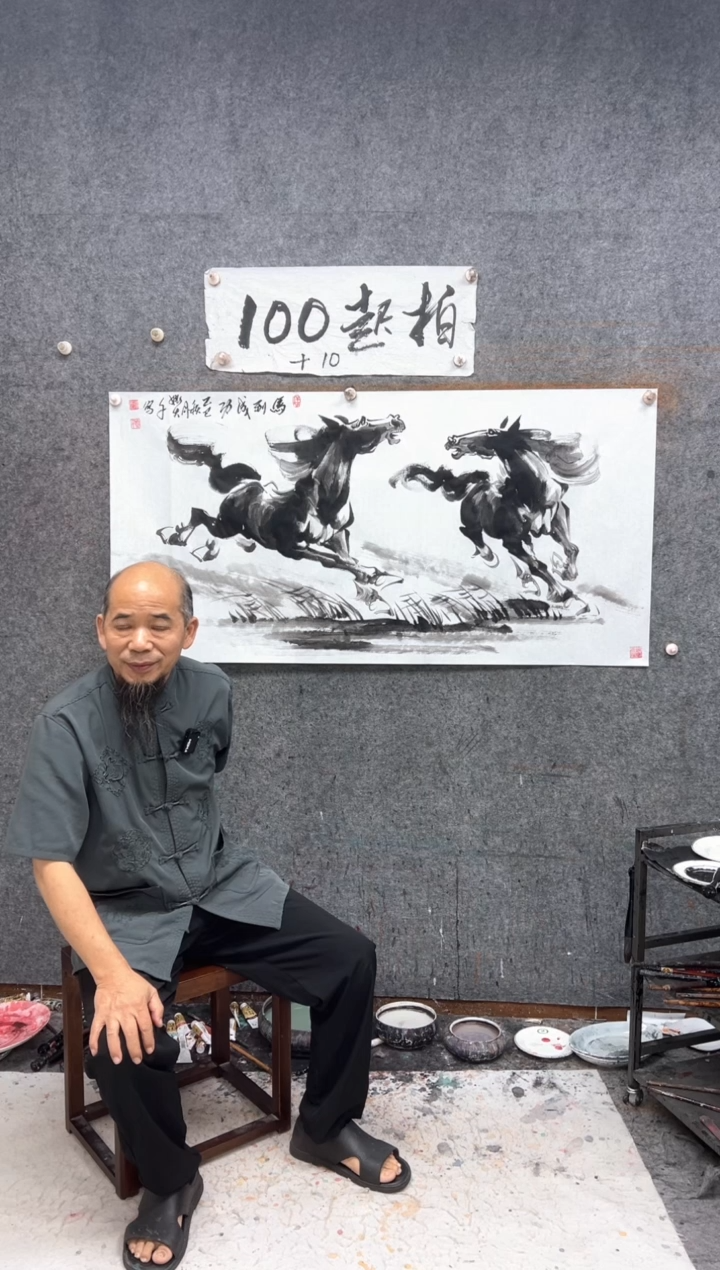 100起拍
+10
馬到成功